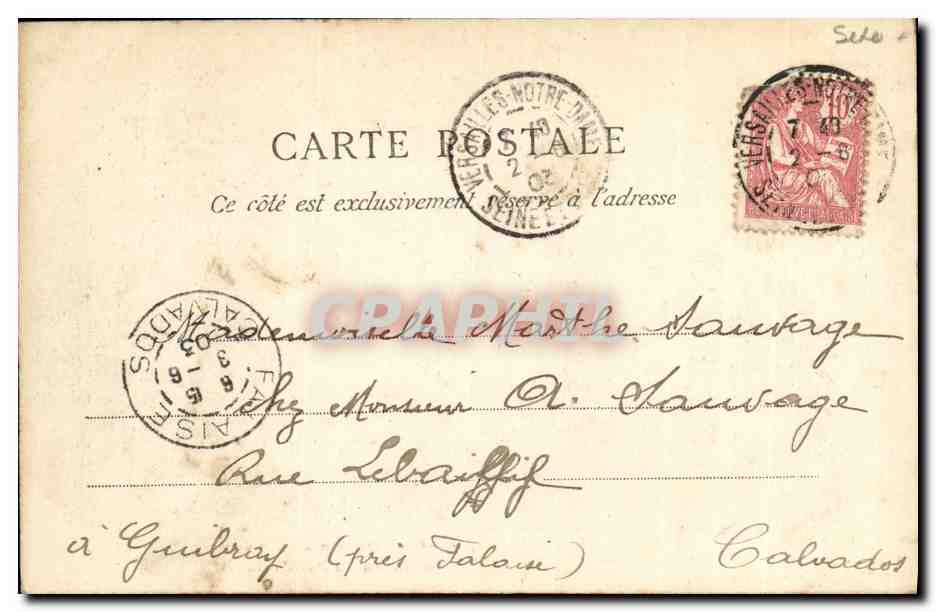 CARTE POSTALE
Ce côté est exclusivement réservé à l'adresse
VERSAILLES-NOTRE-DAME
2
03
SEINE ET
VERSAILLES-NOTRE
7 40
2 - 6
10
FALAISE
CALVADOS
8 15
3 - 6
03
CPAPHIL
Mademoiselle Marthe Sauvage
chez Monsieur A. Sauvage
Rue Lebaillif
à Guibray (près Falaise) Calvados